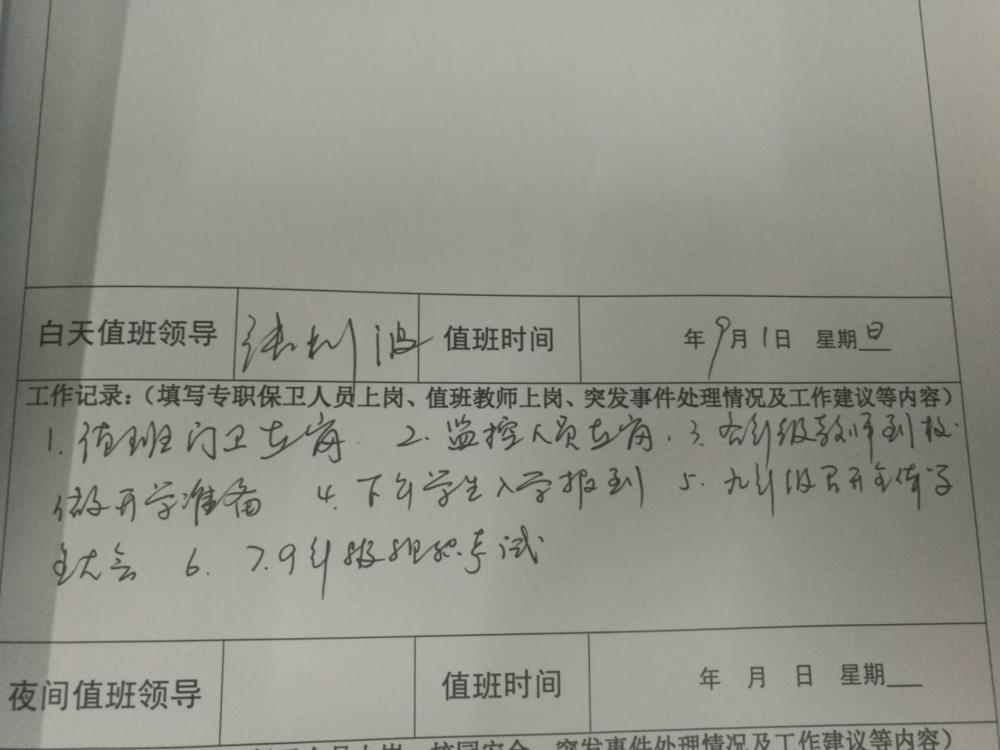 白天值班领导 波 值班时间 年9月1日 星期日
工作记录:(填写专职保卫人员上岗、值班教师上岗、突发事件处理情况及工作建议等内容)
1. 值班门卫在岗 2. 监控人员在岗. 3. 各年级教师到校.
做开学准备 4. 下午学生入学报到 5. 九年级召开全体学
生大会 6. 7.9年级组织考试
夜间值班领导 值班时间 年 月 日 星期
突发事件处理情况及工作建议等内容)